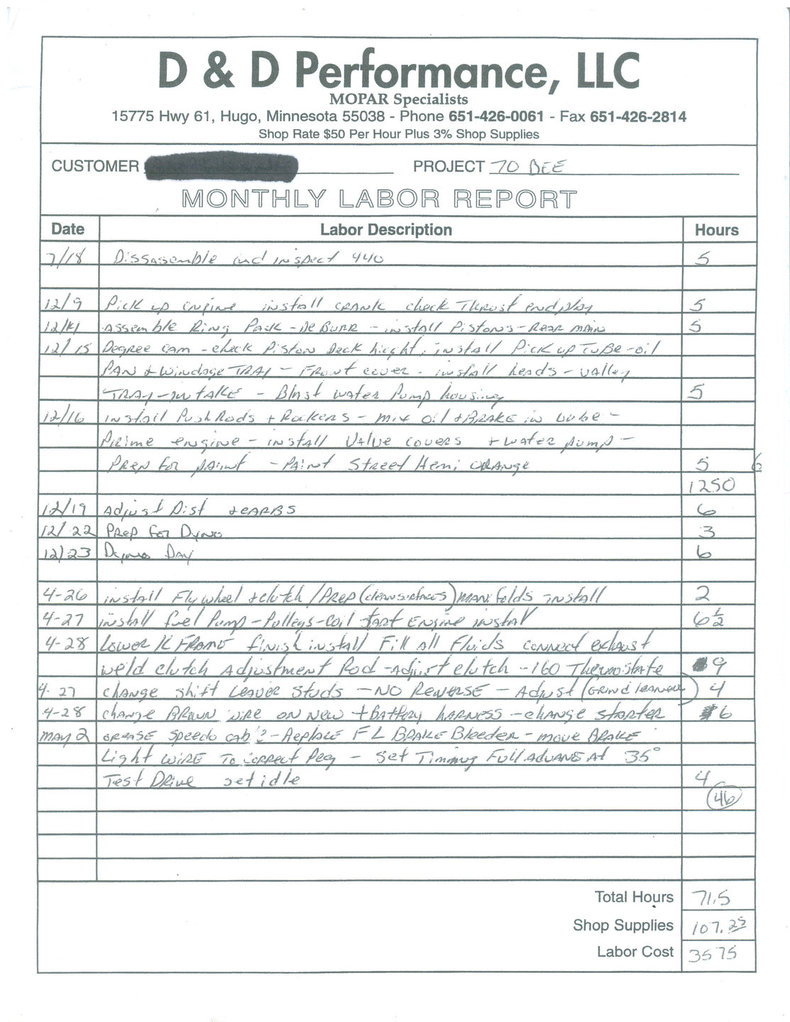 D & D Performance, LLC
MOPAR Specialists
15775 Hwy 61, Hugo, Minnesota 55038 - Phone 651-426-0061 - Fax 651-426-2814
Shop Rate $50 Per Hour Plus 3% Shop Supplies
CUSTOMER PROJECT 70 BEE
MONTHLY LABOR REPORT
Date Labor Description Hours
7/18 Dissasemble and inspect 440 5
12/9 Pick up engine install crank check Thrust endplay 5
12/14 assemble Ring Pack - DeBurr - install Pistons - Rear main 5
12/15 Degree cam - check Piston Deck hight, install Pick up Tube - oil
PAN & Windage TRAY - Front cover - install heads - valley
TRAY - intake - Blast water Pump housing 5
12/16 install PushRods + Rockers - mix oil + BRAKE in lube -
Prime engine - install Valve covers + water pump -
Prep for paint - Paint Street Hemi orange 5 6
1250
12/19 Adjust Dist + CARBS 6
12/22 Prep for Dyno 3
12/23 Dyno Day 6
4-26 install Flywheel + clutch / PREP (clean surfaces) manifolds install 2
4-27 install fuel Pump - Pulleys - Coil start Engine install 6 1/2
4-28 Lower K FRAME finish install Fill all Fluids connect exhaust
weld clutch Adjustment Rod - Adjust clutch - 160 Thermostate 9
4-27 change shift Leaver Studs - NO Reverse - Adjust (Grind Leaver) 4
4-28 change Brown wire on new + Battery harness - change starter 6
MAY 2 Speedo - Replace F L BRAKE Bleeder - move BRAKE
Light wire To correct Peg - Set Timing Full advane At 35°
Test Drive set idle 4
46
Total Hours 71.5
Shop Supplies 107.25
Labor Cost 3575